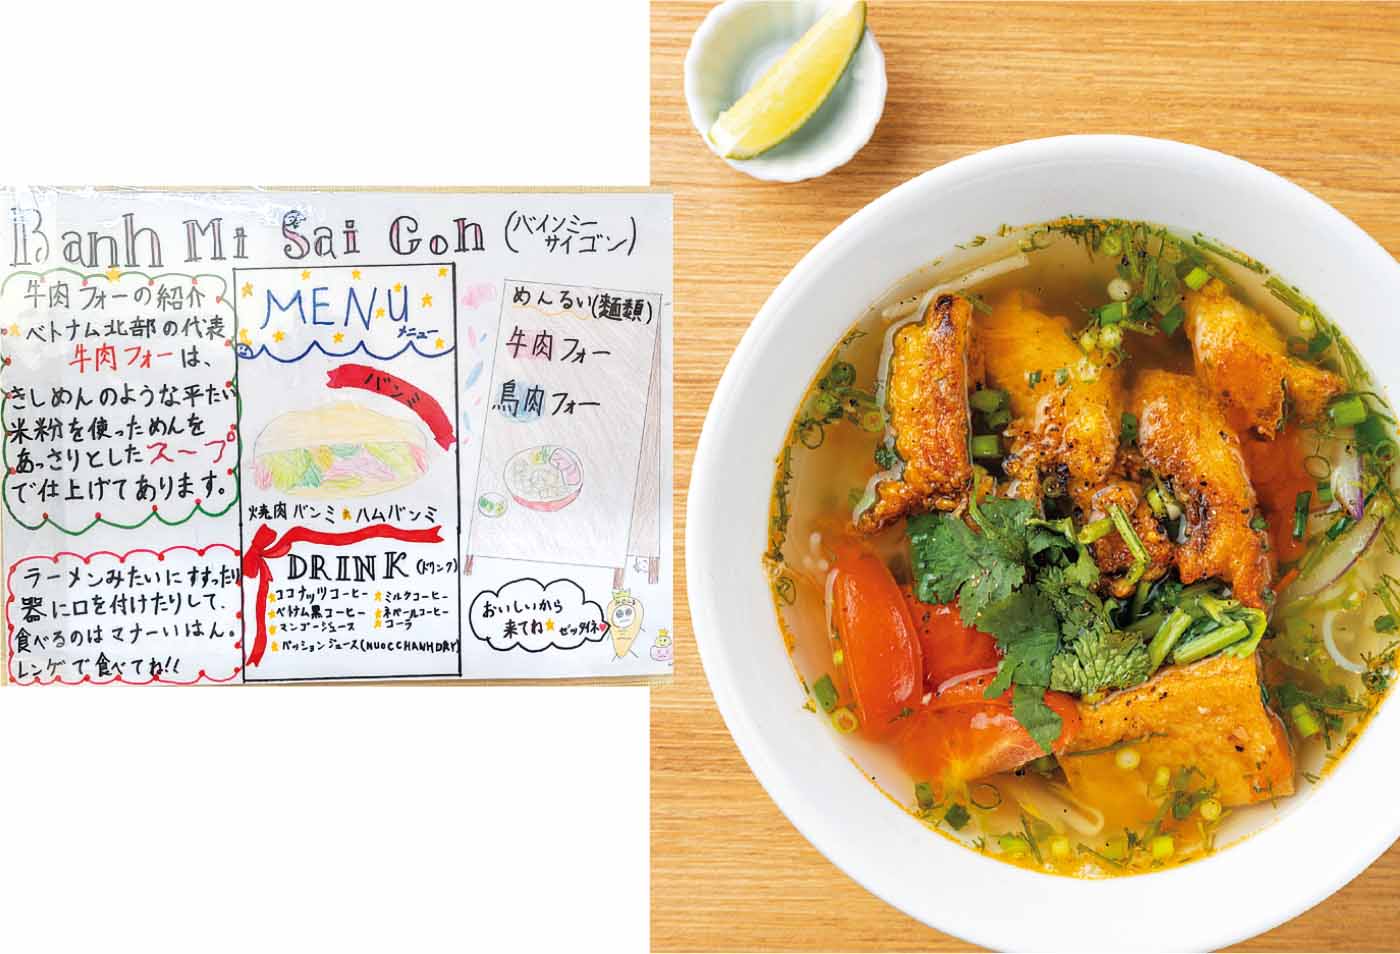 Banh Mi Sai Gon (バインミー
サイゴン)
牛肉フォーの紹介
ベトナム北部の代表
牛肉フォーは、
きしめんのような平たい
米粉を使っためんを
あっさりとしたスープ
で仕上げてあります。
ラーメンみたいにすすったり
器に口を付けたりして、
食べるのはマナーいはん。
レンゲで食べてね!!
MENU
メニュー
バンミ
焼肉バンミ★ハムバンミ
DRINK(ドリンク)
★ココナッツコーヒー ★ミルクコーヒー
★ベトナム黒コーヒー ★ネパールコーヒー
★マンゴージュース ★コーラ
★パッションジュース(NUOCCHANHDRY)
めんるい(麺類)
牛肉フォー
鳥肉フォー
おいしいから
来てね★ゼッタイネ♥